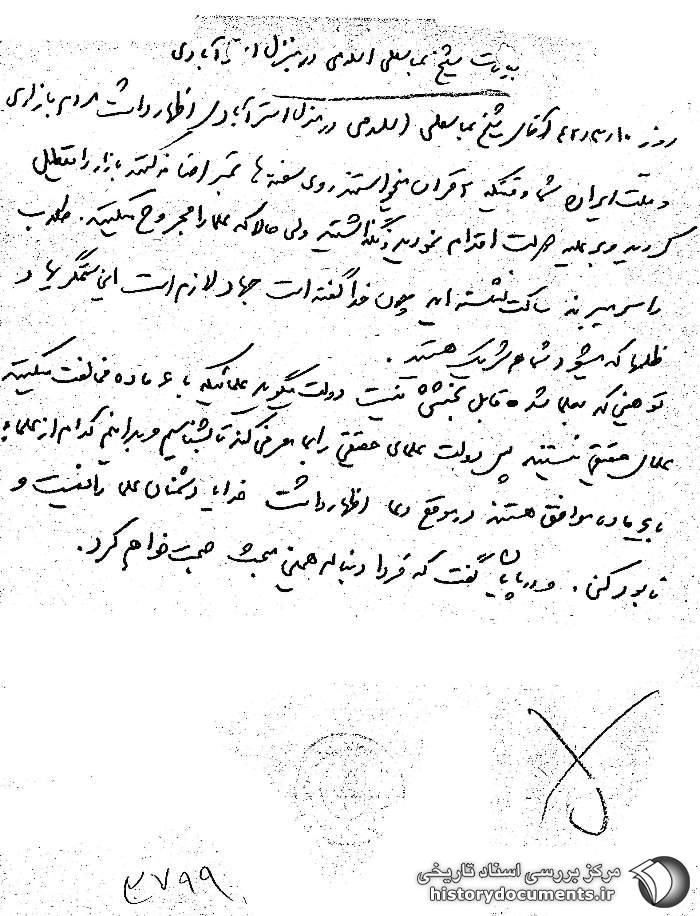 بیانات شیخ عباسعلی اسلامی در منزل استرآبادی
روز ۴۲/۳/۱۰ آقای شیخ عباسعلی اسلامی در منزل استرآبادی اظهار داشت مردم بازاری
و ملت ایران شما وقتیکه آقایان میخواستند روی سفته ها تمبر اضافه کنند بازار را تعطیل
کردید و بر علیه دولت اقدام نمودید و نگذاشتید ولی حالا که علما را مجروح میکنند. طلاب
را سر میبرند ساکت نشسته اید چون خدا گفته است جهاد لازم است این ستمگریها و
ظلمها که میشود شما هم شریک هستید.
توهینی که بعلما شده قابل بخشش نیست دولت میگوید علمائیکه با ۶ ماده مخالفت میکنند
علمای حقیقی نیستند پس دولت علمای حقیقی را بما معرفی کند تا بشناسیم و بدانیم کدام از علماء
با ماده موافق هستند در موقع دعا اظهار داشت خدایا دشمنان علما را نیست و
نابود کن. و در پایان گفت که فردا دنباله همین مبحث صحبت خواهم کرد.
۲۷۹۹
مرکز بررسی اسناد تاریخی
historydocuments.ir